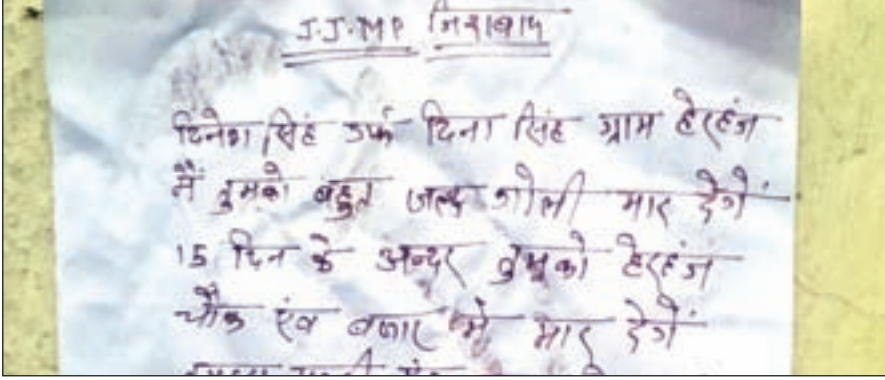 J.J.MP जिन्दाबाद
दिनेश सिंह उर्फ दिना सिंह ग्राम हेरहंज
मैं तुमको बहुत जल्द गोली मार देगें
15 दिन के अन्दर तुमको हेरहंज
चौक एंव बजार में मार देगें